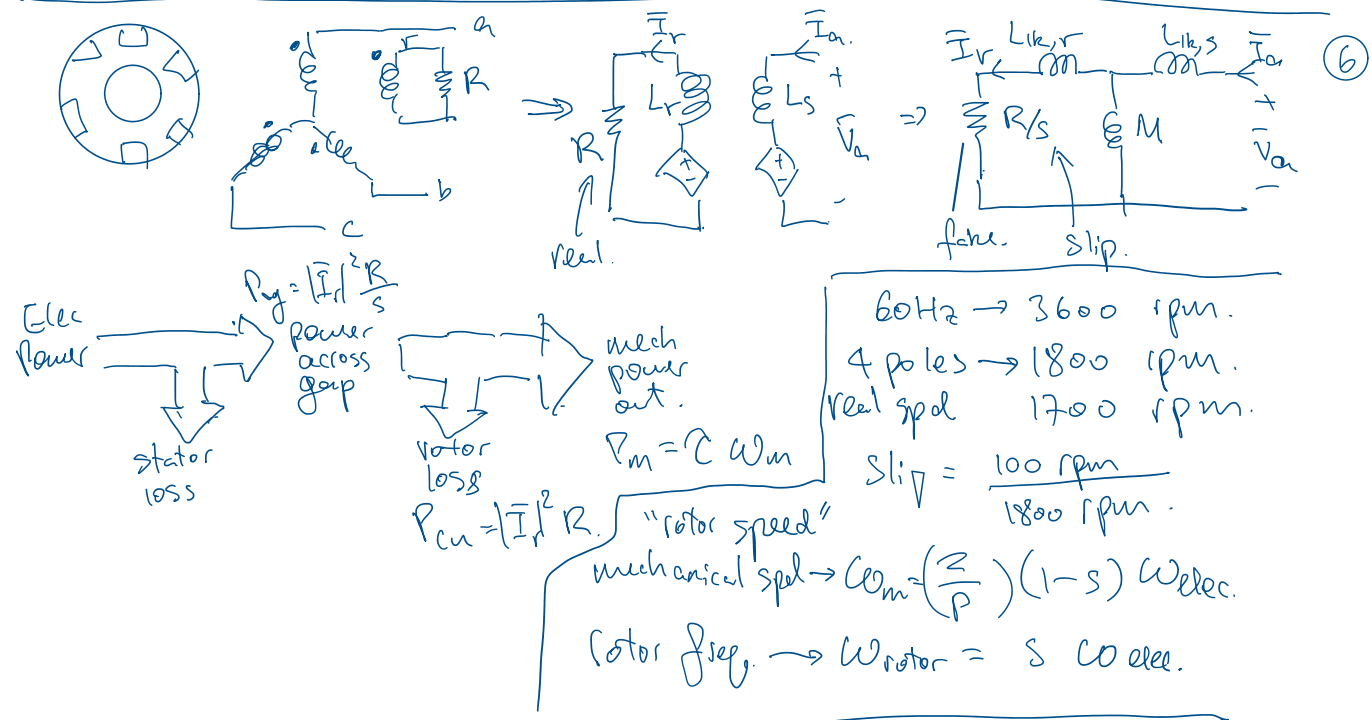 a
r
R
b
c
Īr
Īa.
R
Lr
Ls
+
V̄a
-
+
-
+
-
real.
⇒
⇒
Īr
Llk,r
Llk,s
Īa
⑥
R/s
M
+
V̄a
-
fake.
slip.
Elec
Power
Pag = |Īr|² R/s
power
across
gap
stator
loss
rotor
loss
Pcu = |Īr|² R.
mech
power
out.
Pm = τ ωm
60Hz → 3600 rpm.
4 poles → 1800 rpm.
real spd 1700 rpm.
Slip = 100 rpm / 1800 rpm.
"rotor speed"
mechanical spd → ωm = (2/p)(1-s) ωelec.
rotor freq. → ωrotor = s ωelec.